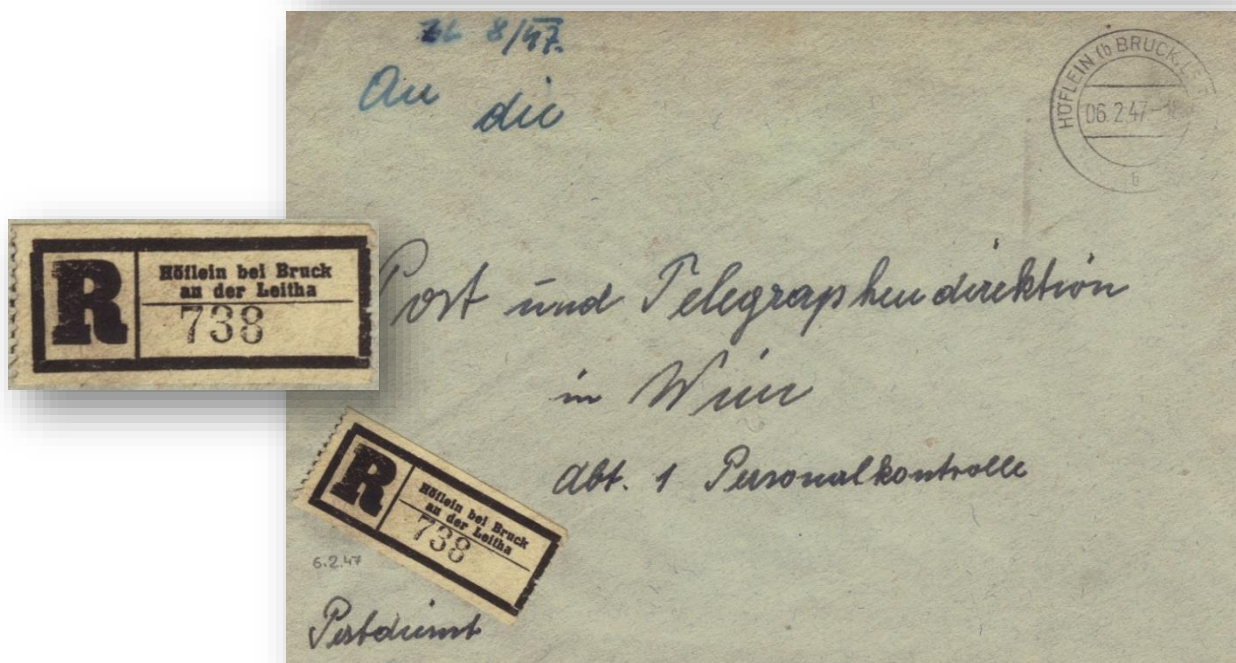 8/47.
An die
HÖFLEIN (b BRUCK,
06. 2.47-18
b
R
Höflein bei Bruck
an der Leitha
738
Post und Telegraphendirektion
in Wien
Abt. 1 Personalkontrolle
R
Höflein bei Bruck
an der Leitha
738
6.2.47
Postdienst